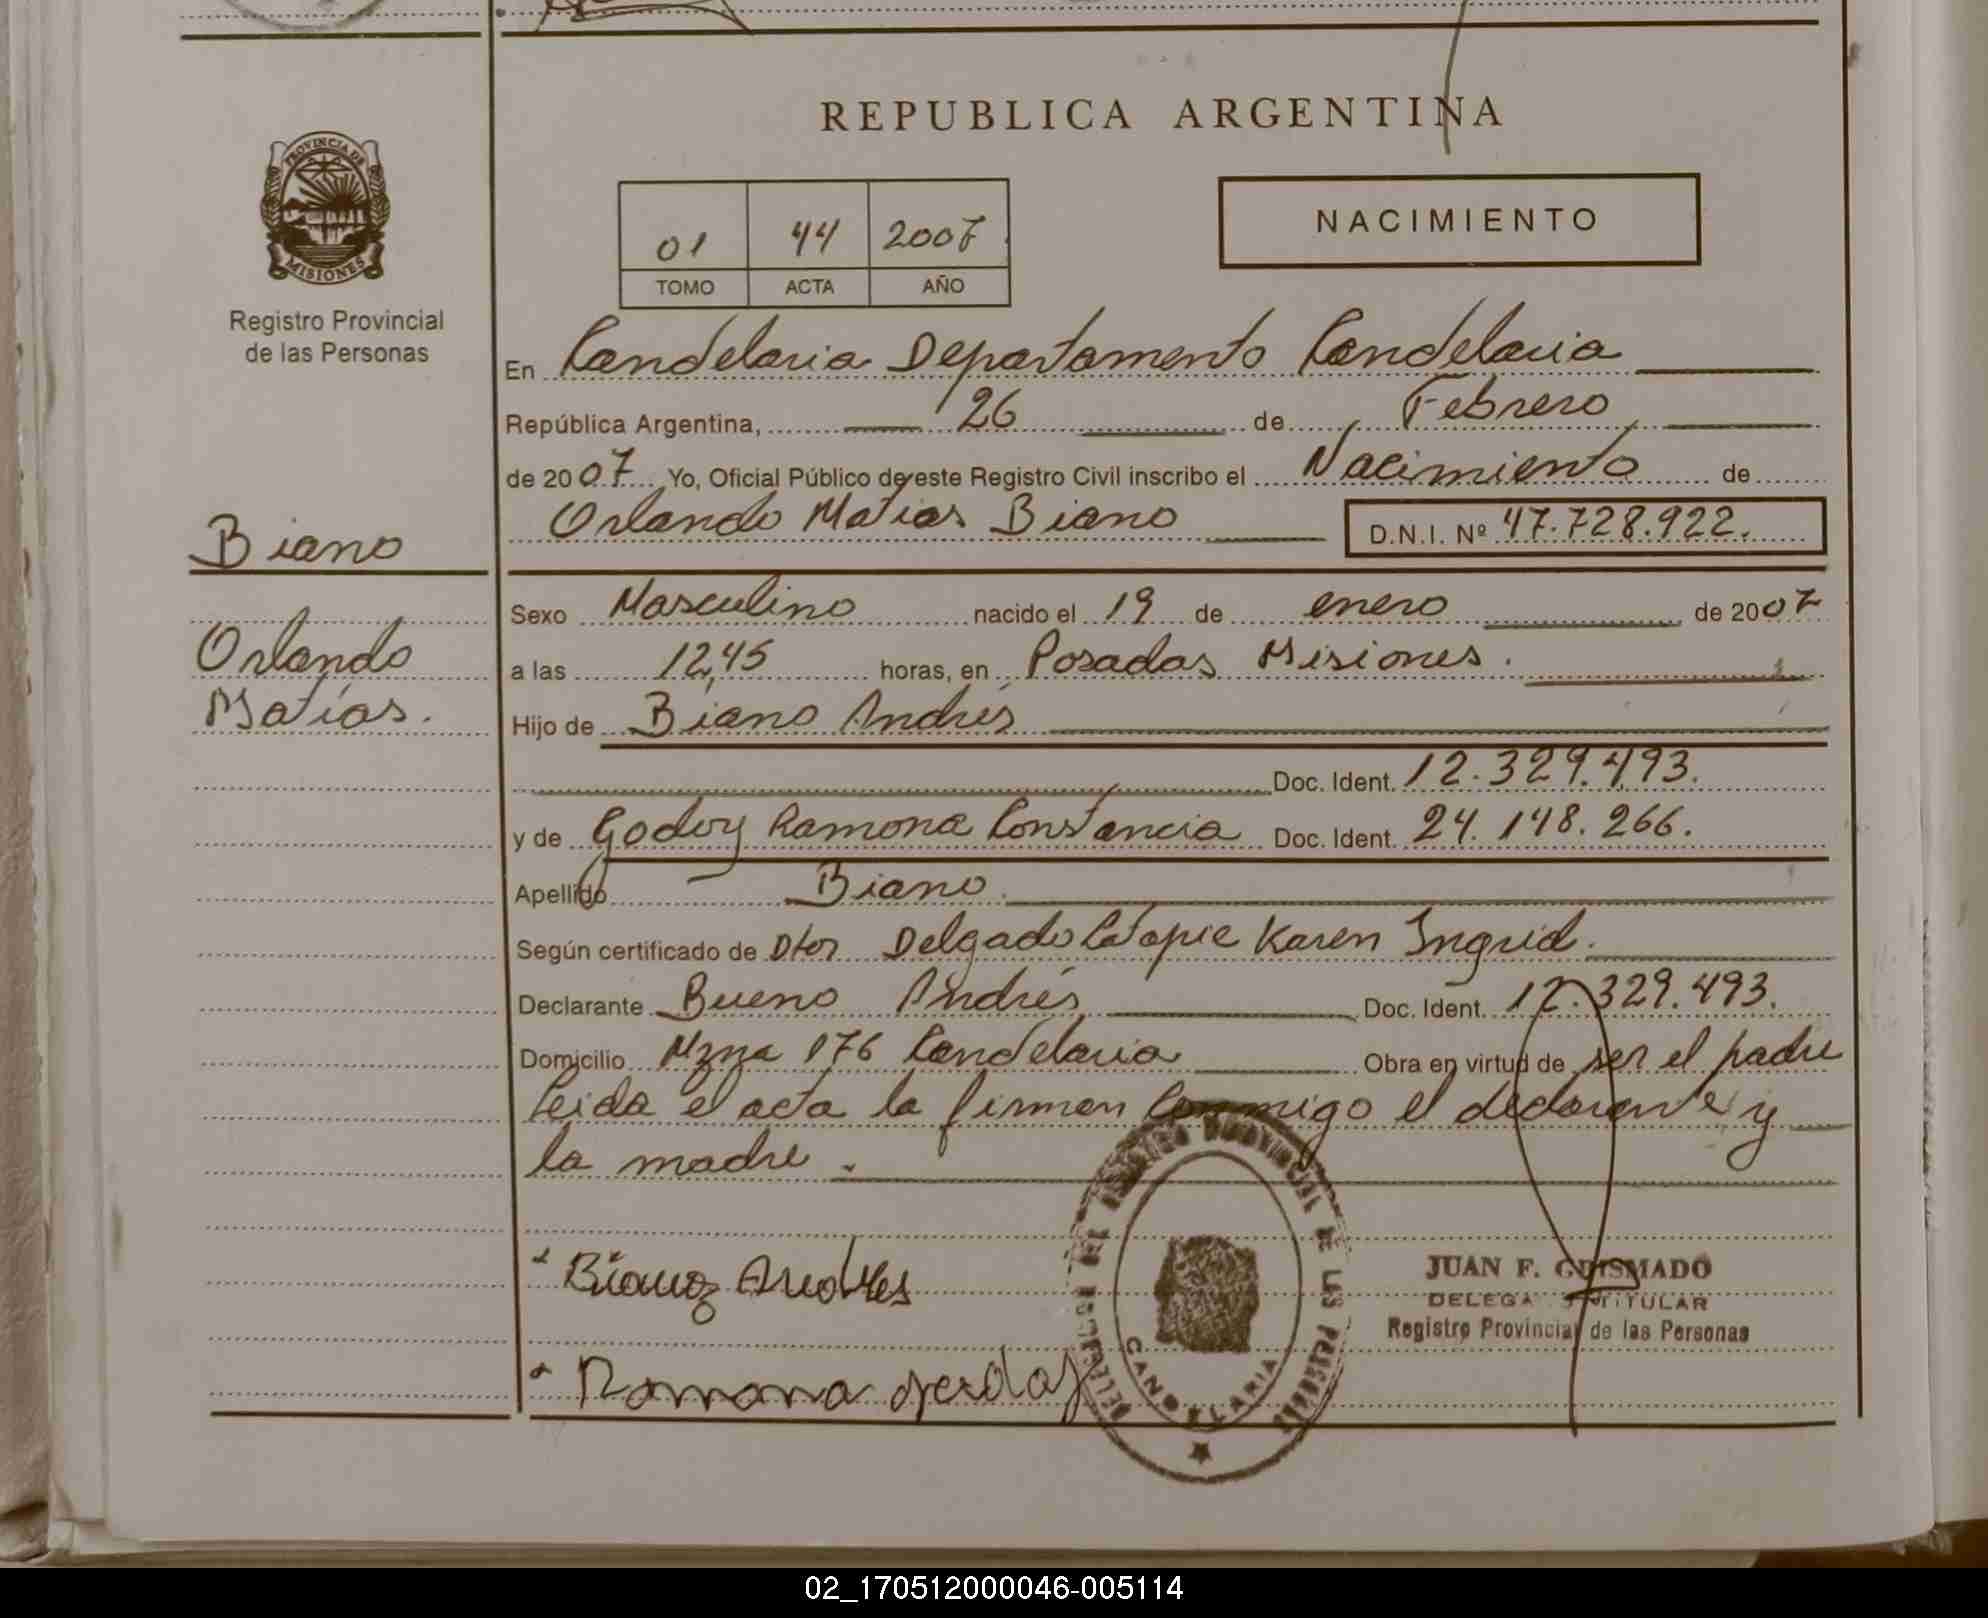 REPUBLICA ARGENTINA
PROVINCIA DE
MISIONES
Registro Provincial
de las Personas
01 44 2007
TOMO ACTA AÑO
NACIMIENTO
En Candelaria Departamento Candelaria
República Argentina, 26 de Febrero
de 2007 Yo, Oficial Público de este Registro Civil inscribo el Nacimiento de
Orlando Matias Biano D.N.I. Nº 47.728.922.
Biano
Orlando
Matías.
Sexo Masculino nacido el 19 de enero de 2007
a las 12,45 horas, en Posadas Misiones.
Hijo de Biano Andrés
Doc. Ident. 12.329.493.
y de Godoy Ramona Constancia Doc. Ident. 24.148.266.
Apellido Biano
Según certificado de Delgado Karen Ingrid.
Declarante Bueno Andrés Doc. Ident. 12.329.493.
Domicilio Mzna 176 Candelaria Obra en virtud de ser el padre
Leida el acta la firman conmigo el declarante y
la madre.
Andres
Ramona
REGISTRO PROVINCIAL DE LAS PERSONAS
CANDELARIA
JUAN F. GUISMADO
DELEGADO TITULAR
Registro Provincial de las Personas
02_170512000046-005114